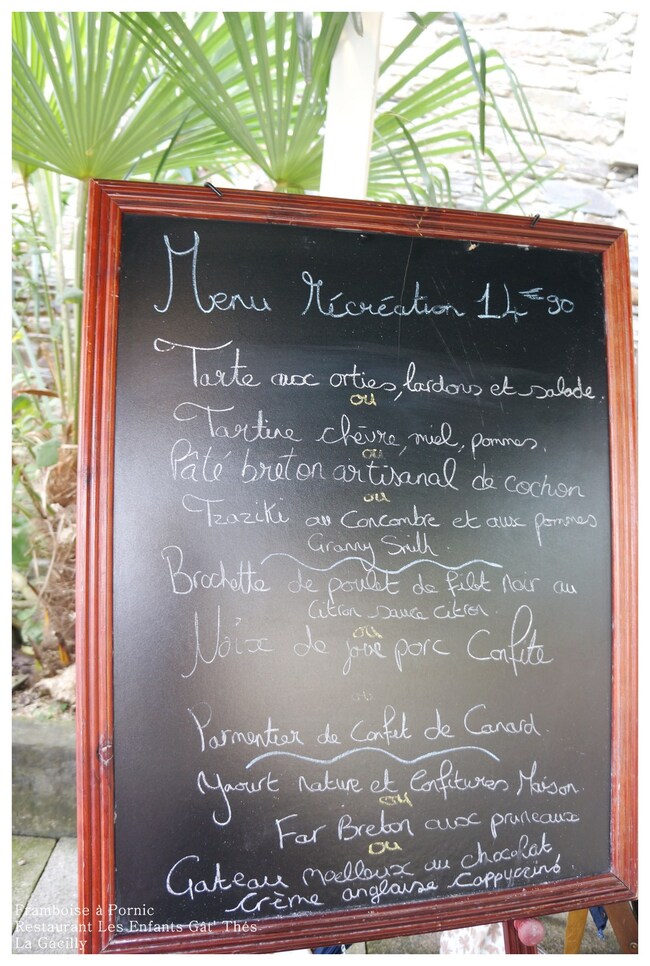 Menu Récréation 14€90
Tarte aux orties, lardons et salade.
ou
Tartine chèvre, miel, pommes.
ou
Pâté breton artisanal de cochon
ou
Tzaziki au Concombre et aux pommes
Granny Smith.
Brochette de poulet de filet noir au
Citron sauce citron.
ou
Noix de joue porc Confite
ou
Parmentier de Confit de Canard.
Yaourt nature et Confitures Maison.
ou
Far Breton aux pruneaux
ou
Gateau moelleux au chocolat
crème anglaise Cappuccino.
Framboise à Pornic
Restaurant Les Enfants Gât' Thés
La Gacilly